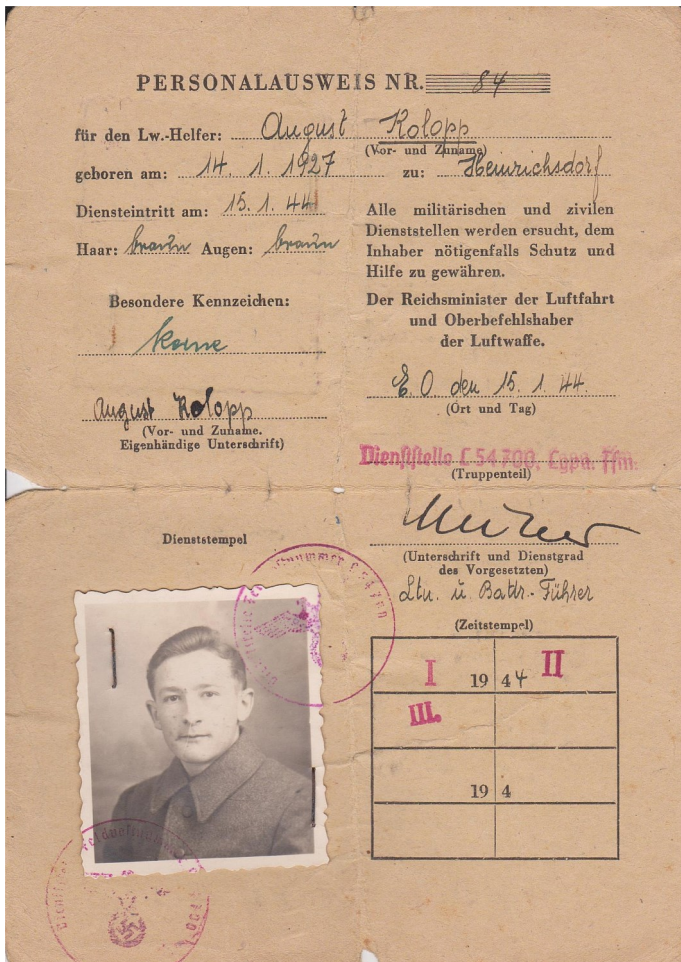 PERSONALAUSWEIS NR. 84
für den Lw.-Helfer: August Kolopp
(Vor- und Zuname)
geboren am: 14. 1. 1927 zu: Heinrichsdorf
Diensteintritt am: 15. 1. 44
Haar: braun Augen: braun
Besondere Kennzeichen:
keine
August Kolopp
(Vor- und Zuname.
Eigenhändige Unterschrift)
Alle militärischen und zivilen
Dienststellen werden ersucht, dem
Inhaber nötigenfalls Schutz und
Hilfe zu gewähren.
Der Reichsminister der Luftfahrt
und Oberbefehlshaber
der Luftwaffe.
E. O den 15. 1. 44.
(Ort und Tag)
Dienststelle L 54 700, Lgpa. Ffm.
(Truppenteil)
(Unterschrift und Dienstgrad
des Vorgesetzten)
Ltn. u. Battr.-Führer
Dienststempel
(Zeitstempel)
I 19 44 II
III.
19 4